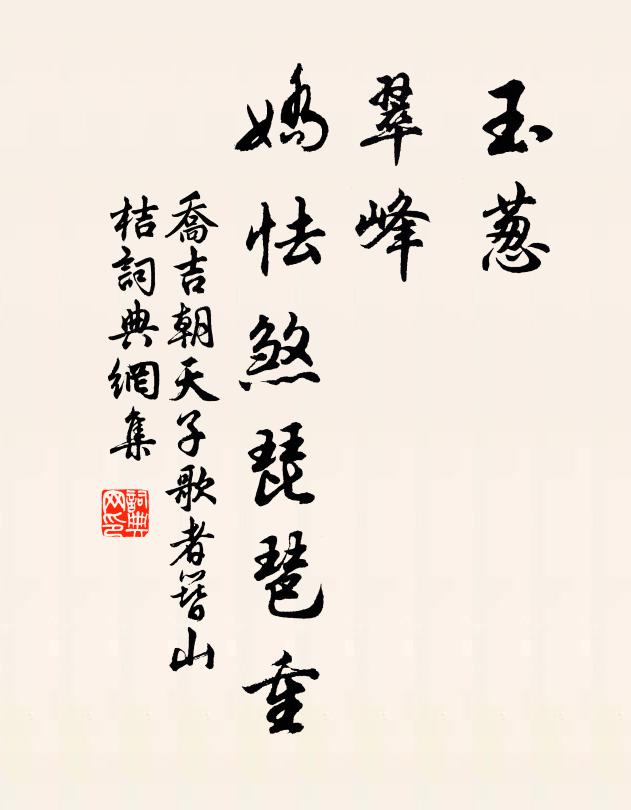 玉葱
翠峰
嬌怯煞琵琶重
喬吉朝天子歌者簪山
桔詞典網集
詞典
网印